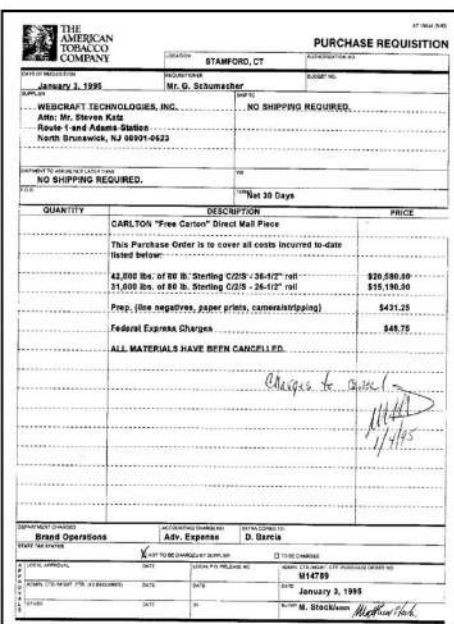 AT 13544 (5-93)
THE
AMERICAN
TOBACCO
COMPANY
PURCHASE REQUISITION
LOCATION
STAMFORD, CT
AUTHORIZATION NO.
DATE OF REQUISITION
January 3, 1995
REQUISITIONER
Mr. G. Schumacher
BUDGET NO.
SUPPLIER
WEBCRAFT TECHNOLOGIES, INC.
Attn: Mr. Steven Katz
Route 1 and Adams Station
North Brunswick, NJ 08901-0623
SHIP TO
NO SHIPPING REQUIRED.
SHIPMENT TO ARRIVE NOT LATER THAN
NO SHIPPING REQUIRED.
VIA
F.O.B.
TERMS
Net 30 Days
QUANTITY DESCRIPTION PRICE
CARLTON "Free Carton" Direct Mail Piece
This Purchase Order is to cover all costs incurred to-date
listed below:
42,000 lbs. of 80 lb. Sterling C/2/S - 36-1/2" roll $20,580.00
31,000 lbs. of 80 lb. Sterling C/2/S - 26-1/2" roll $15,190.00
Prep. (line negatives, paper prints, camera/stripping) $431.25
Federal Express Charges $45.75
ALL MATERIALS HAVE BEEN CANCELLED.
Charges to cancel
1/4/95
DEPARTMENT CHARGED
Brand Operations
ACCOUNTING CHARGE NO.
Adv. Expense
EXTRA COPIES TO:
D. Barcia
STATE TAX STATUS
X NOT TO BE CHARGED BY SUPPLIER
TO BE CHARGED
APPROVALS
LOCAL APPROVAL
DATE
LOCAL P.O. RELEASE NO.
ADMN. CTR./MGMT. CTR. PURCHASE ORDER NO.
M14789
ADMN. CTR./MGMT. CTR. (AS REQUIRED)
DATE
DATE
DATE
January 3, 1995
OTHER
DATE
BUYER M. Stock